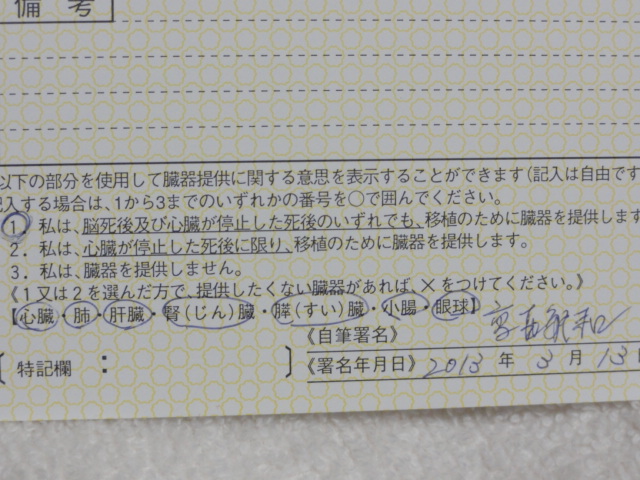 備考
以下の部分を使用して臓器提供に関する意思を表示することができます(記入は自由です
記入する場合は、1から3までのいずれかの番号を○で囲んでください。
1. 私は、脳死後及び心臓が停止した死後のいずれでも、移植のために臓器を提供します
2. 私は、心臓が停止した死後に限り、移植のために臓器を提供します。
3. 私は、臓器を提供しません。
《1又は2を選んだ方で、提供したくない臓器があれば、×をつけてください。》
【心臓・肺・肝臓・腎(じん)臓・膵(すい)臓・小腸・眼球】
《自筆署名》
〔特記欄： 〕
《署名年月日》 2013 年 3 月 13日